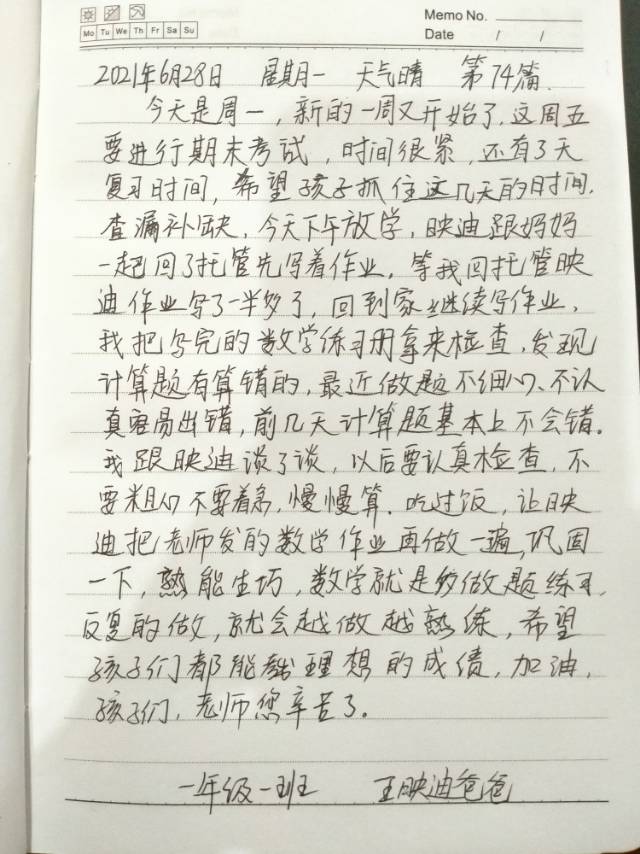 Memo No.
Mo Tu We Th Fr Sa Su
Date / /
2021年6月28日 星期一 天气晴 第74篇.
今天是周一，新的一周又开始了，这周五
要进行期末考试，时间很紧，还有3天
复习时间，希望孩子抓住这几天的时间，
查漏补缺，今天下午放学，映迪跟妈妈
一起回了托管先写着作业，等我回托管映
迪作业写了一半多了，回到家继续写作业，
我把写完的数学练习册拿来检查，发现
计算题有算错的，最近做题不细心、不认
真容易出错，前几天计算题基本上不会错。
我跟映迪谈了谈，以后要认真检查，不
要粗心不要着急，慢慢算，吃过饭，让映
迪把老师发的数学作业再做一遍，巩固
一下，熟能生巧，数学就是多做题练习，
反复的做，就会越做越熟练，希望
孩子们都能 理想的成绩，加油，
孩子们，老师您辛苦了。
一年级一班 王映迪爸爸